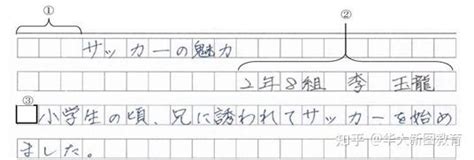 ①
②
サッカーの魅力
2年8組 李 玉龍
③
小学生の頃、兄に誘われてサッカーを始め
ました。
知乎 @华大新图教育